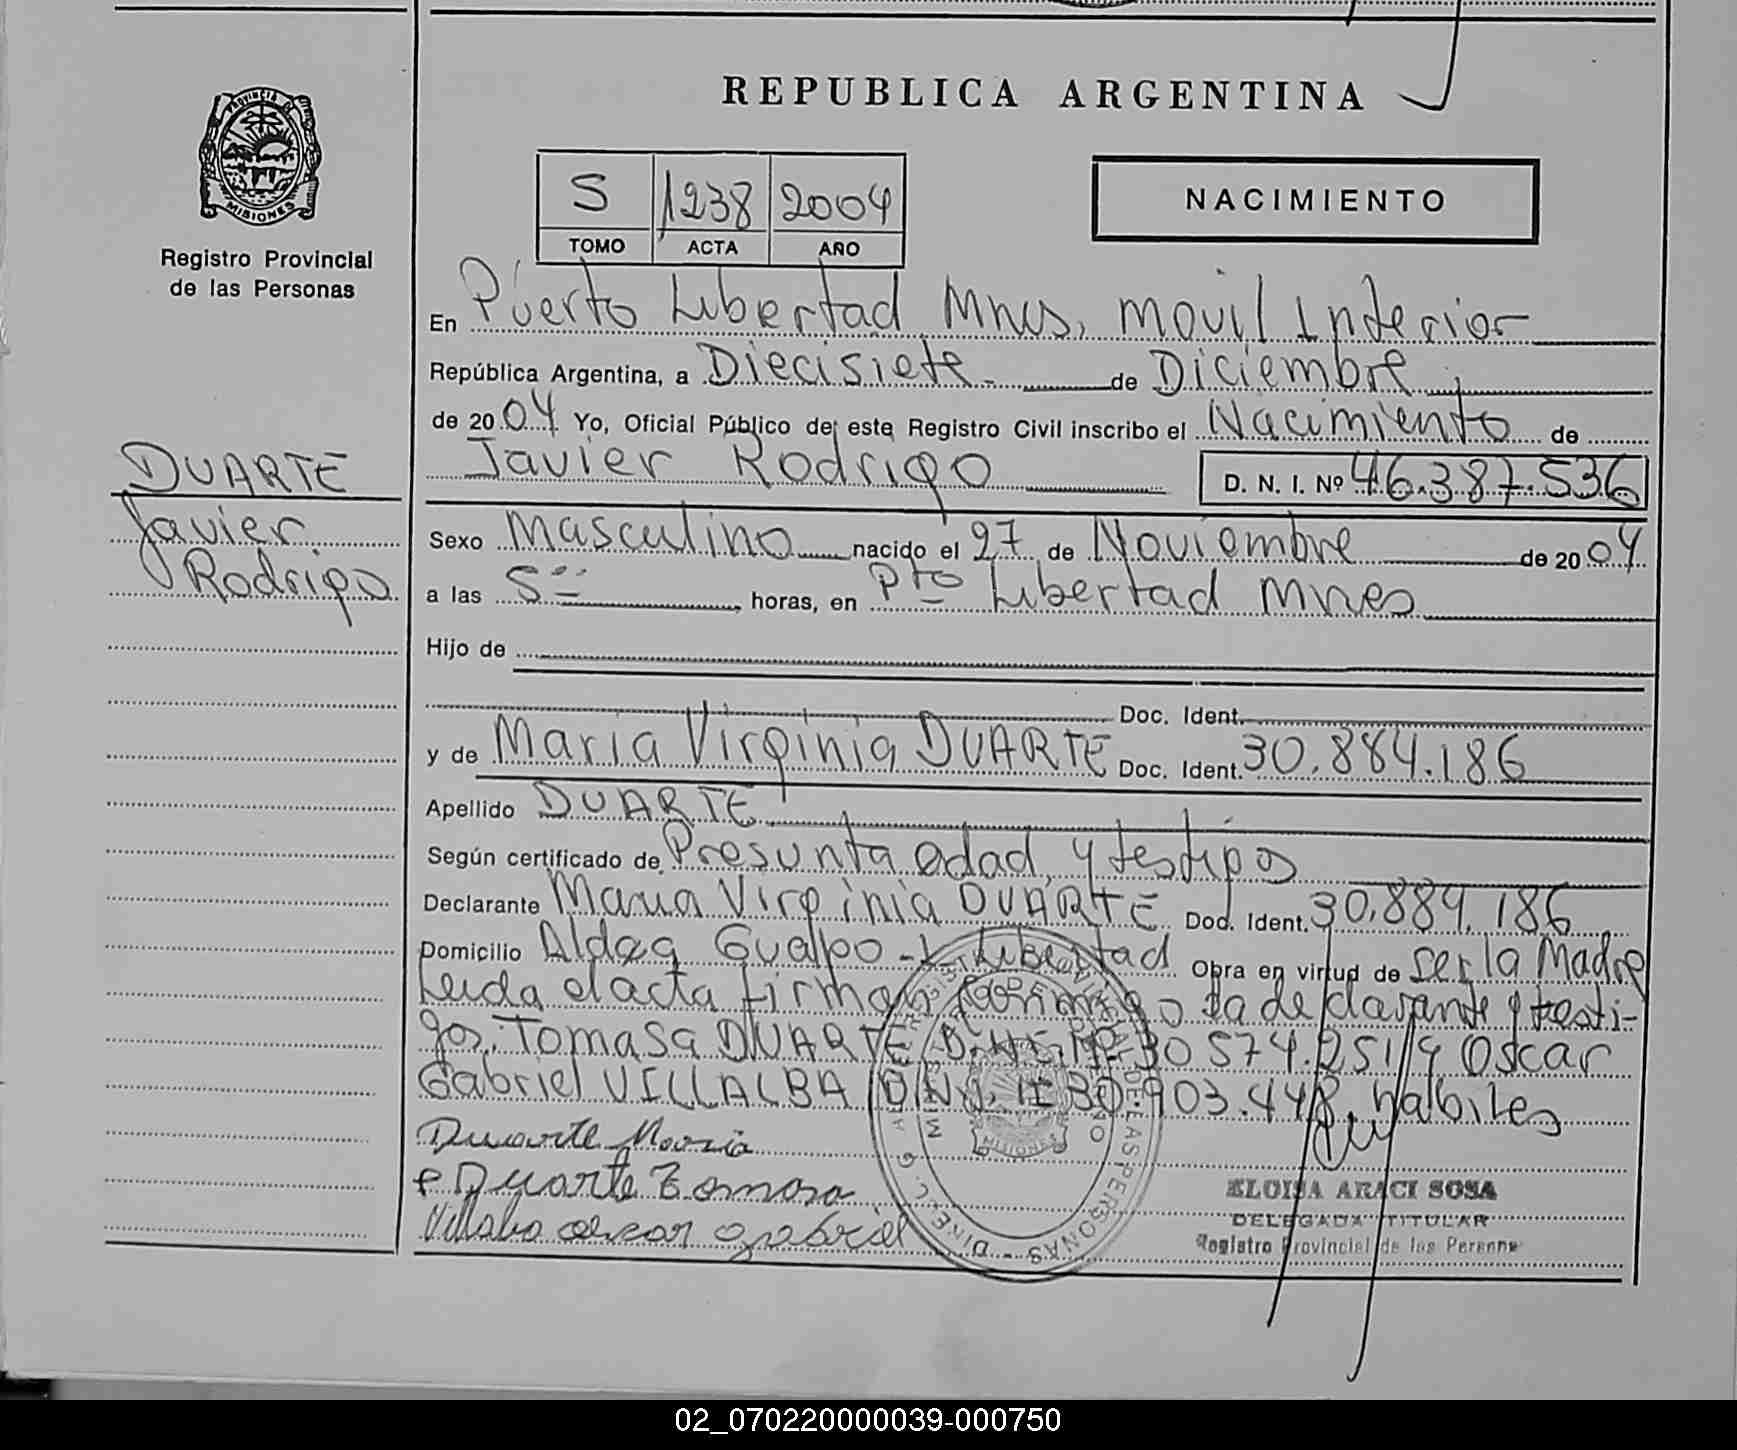 REPUBLICA ARGENTINA
PROVINCIA DE
MISIONES
Registro Provincial
de las Personas
S 1238 2004
TOMO ACTA AÑO
NACIMIENTO
En Puerto Libertad Mnes, Movil Interior
República Argentina, a Diecisiete de Diciembre
de 2004 Yo, Oficial Público de este Registro Civil inscribo el Nacimiento de
Javier Rodrigo D. N. I. Nº 46.387.536
DUARTE
Javier
Rodrigo
Sexo Masculino nacido el 27 de Noviembre de 2004
a las 5 horas, en Pto Libertad Mnes
Hijo de
Doc. Ident.
y de Maria Virginia DUARTE Doc. Ident. 30.884.186
Apellido DUARTE
Según certificado de Presunta edad, y testigos
Declarante Maria Virginia DUARTE Doc. Ident. 30.884.186
Domicilio Aldea Libertad Obra en virtud de ser la Madre
Leida el acta firman conmigo la declarante y testi-
gos: Tomasa DUARTE D.N.I. Nº 30 574.251 y Oscar
Gabriel VILLALBA D.N.I. Nº 30.903.448, habiles
Duarte Maria
Duarte Tomasa
Villalba oscar gabriel
ELOISA ARACI SOSA
DELEGADA TITULAR
Registro Provincial de las Personas
02_070220000039-000750